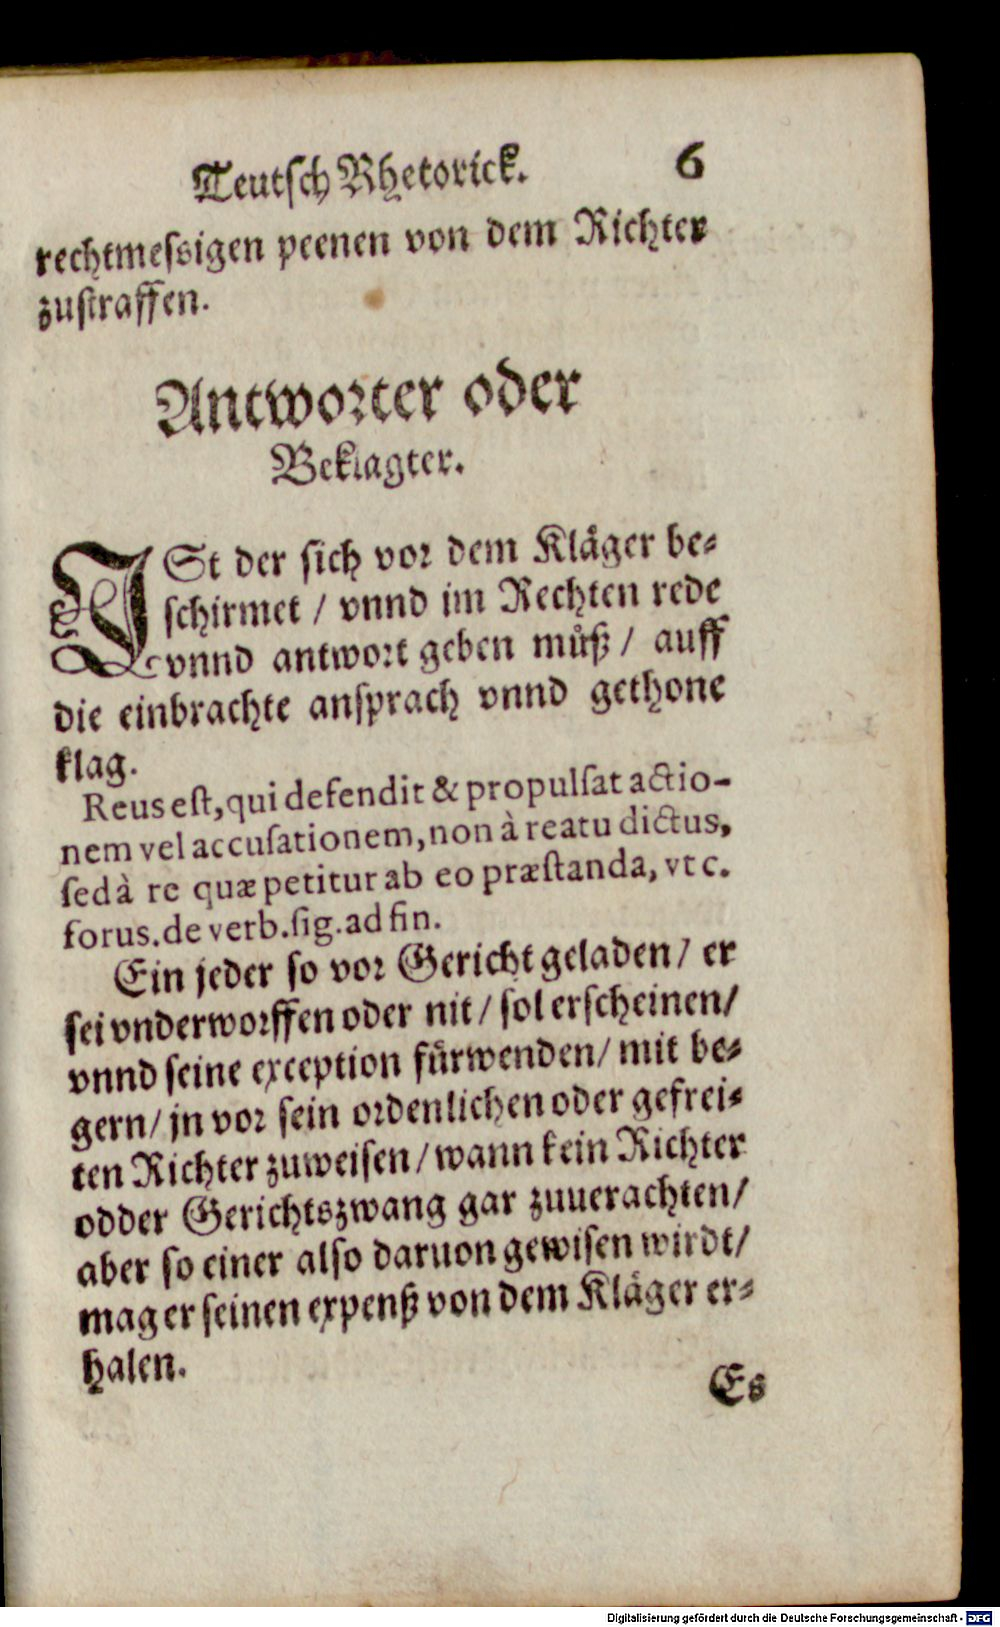 Teutſch Rhetorick. 6
rechtmeſsigen peenen von dem Richter
zuſtraffen.
Antworter oder
Beklagter.
ISt der ſich vor dem Kläger be⸗
ſchirmet / vnnd im Rechten rede
vnnd antwort geben muͦß / auff
die einbrachte anſprach vnnd gethone
klag.
Reus eſt, qui defendit & propulſat actio-
nem vel accuſationem, non à reatu dictus,
ſed à re quæ petitur ab eo præſtanda, vt c.
forus. de verb. ſig. ad fin.
Ein jeder ſo vor Gericht geladen / er
ſei vnderworffen oder nit / ſol erſcheinen /
vnnd ſeine exception fürwenden / mit be⸗
gern / jn vor ſein ordenlichen oder gefrei⸗
ten Richter zuweiſen / wann kein Richter
odder Gerichtszwang gar zuuerachten /
aber ſo einer alſo daruon gewiſen wirdt /
mag er ſeinen expenß von dem Kläger er⸗
halen.
Es
Digitalisierung gefördert durch die Deutsche Forschungsgemeinschaft - DFG